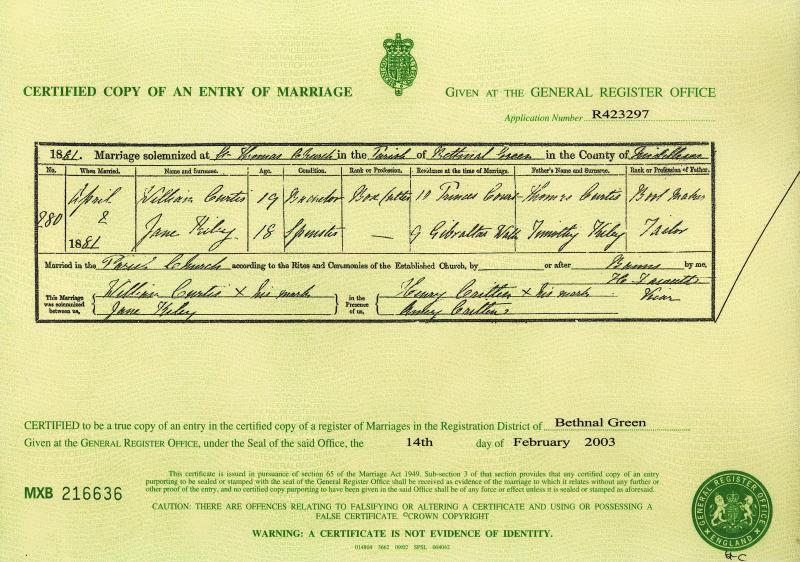 CERTIFIED COPY OF AN ENTRY OF MARRIAGE
GIVEN AT THE GENERAL REGISTER OFFICE
Application Number R423297
1881. Marriage solemnized at St Thomas Church in the Parish of Bethnal Green in the County of Middlesex
No. When Married. Name and Surname. Age. Condition. Rank or Profession. Residence at the time of Marriage. Father's Name and Surname. Rank or Profession of Father.
280 April 2 1881
William Curtis 19 Bachelor Box 10 Princes Court Thomas Curtis Boot Maker
Jane Kiley 18 Spinster — 9 Gibraltar Walk Timothy Kiley Tailor
Married in the Parish Church according to the Rites and Ceremonies of the Established Church, by or after Banns by me,
Vicar
This Marriage was solemnized between us, William Curtis x his mark
Jane Kiley
in the Presence of us, Henry x his mark
CERTIFIED to be a true copy of an entry in the certified copy of a register of Marriages in the Registration District of Bethnal Green
Given at the GENERAL REGISTER OFFICE, under the Seal of the said Office, the 14th day of February 2003
This certificate is issued in pursuance of section 65 of the Marriage Act 1949. Sub-section 3 of that section provides that any certified copy of an entry
purporting to be sealed or stamped with the seal of the General Register Office shall be received as evidence of the marriage to which it relates without any further or
other proof of the entry, and no certified copy purporting to have been given in the said Office shall be of any force or effect unless it is sealed or stamped as aforesaid.
MXB 216636
CAUTION: THERE ARE OFFENCES RELATING TO FALSIFYING OR ALTERING A CERTIFICATE AND USING OR POSSESSING A
FALSE CERTIFICATE. ©CROWN COPYRIGHT
WARNING: A CERTIFICATE IS NOT EVIDENCE OF IDENTITY.
GENERAL REGISTER OFFICE
ENGLAND